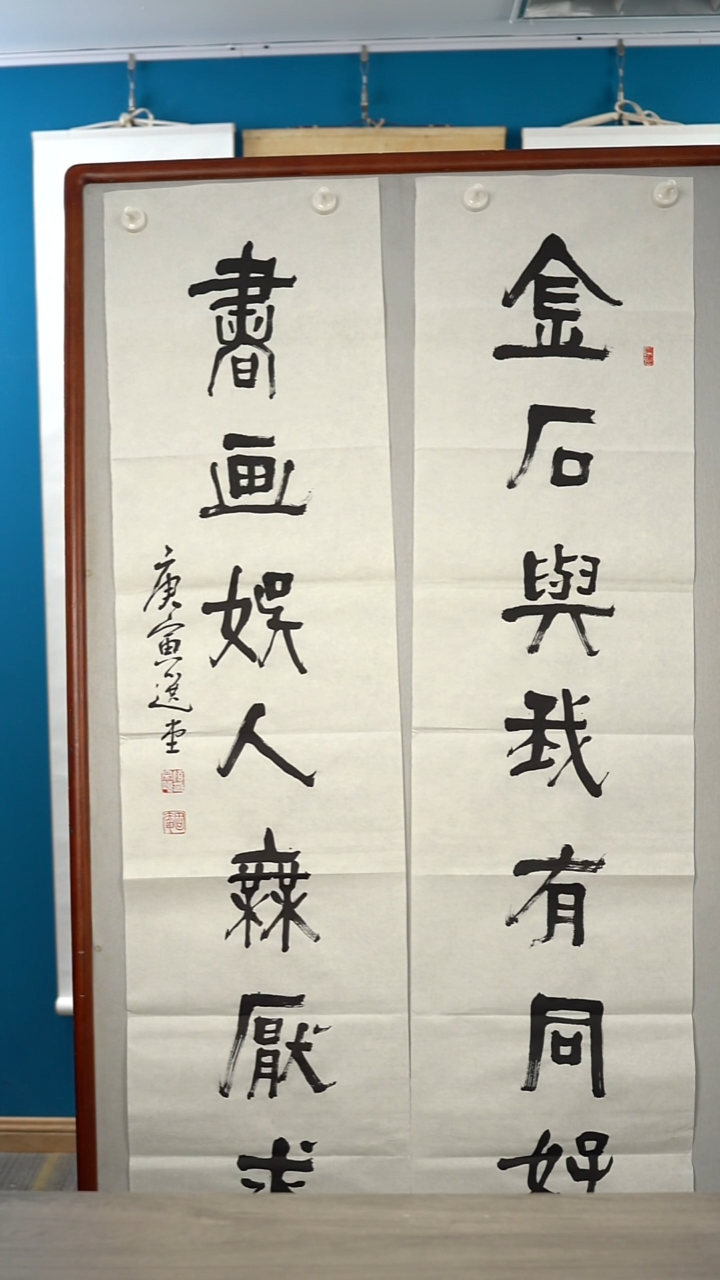 金石與我有同好
書画娛人無厭求
庚寅選堂